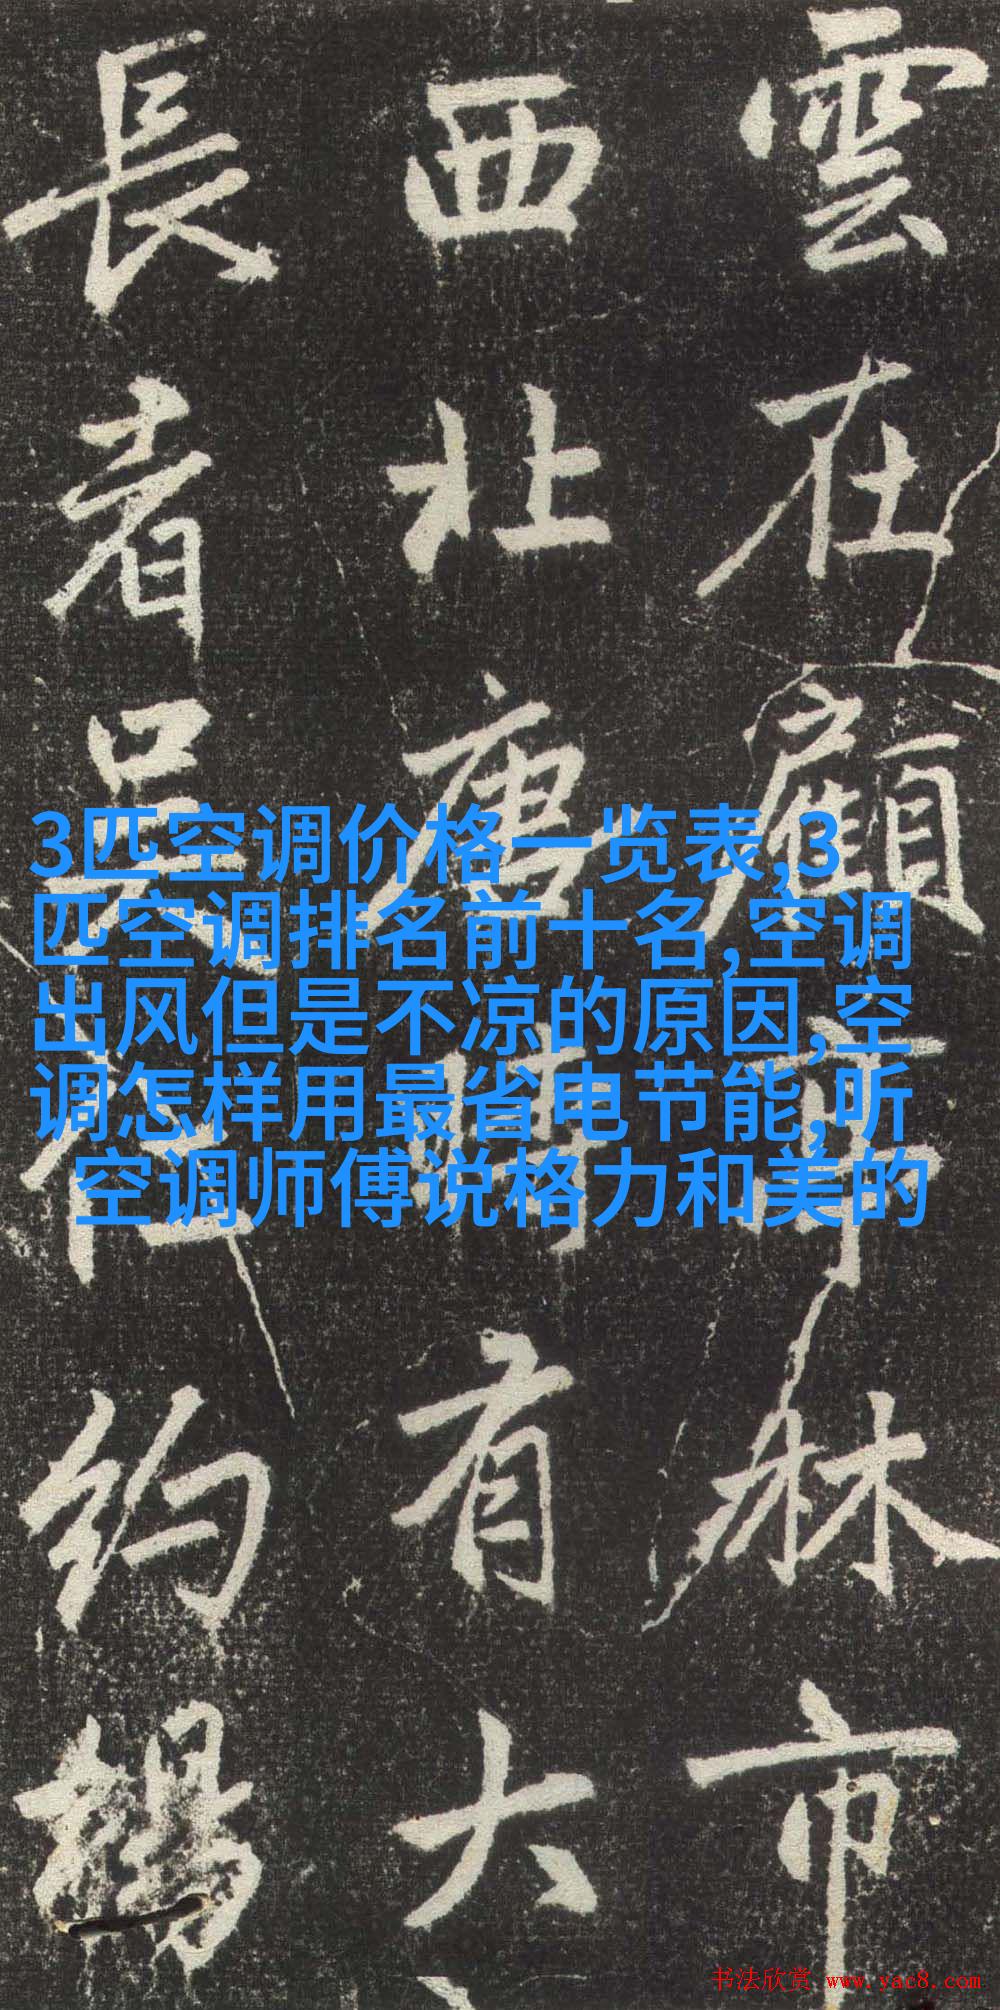 雲在顧亭林市
西北唐時有大
長者吳約
3匹空调价格一览表,3
匹空调排名前十名,空调
出风但是不凉的原因,空
调怎样用最省电节能,听
空调师傅说格力和美的
书法欣赏 www.yac8.com